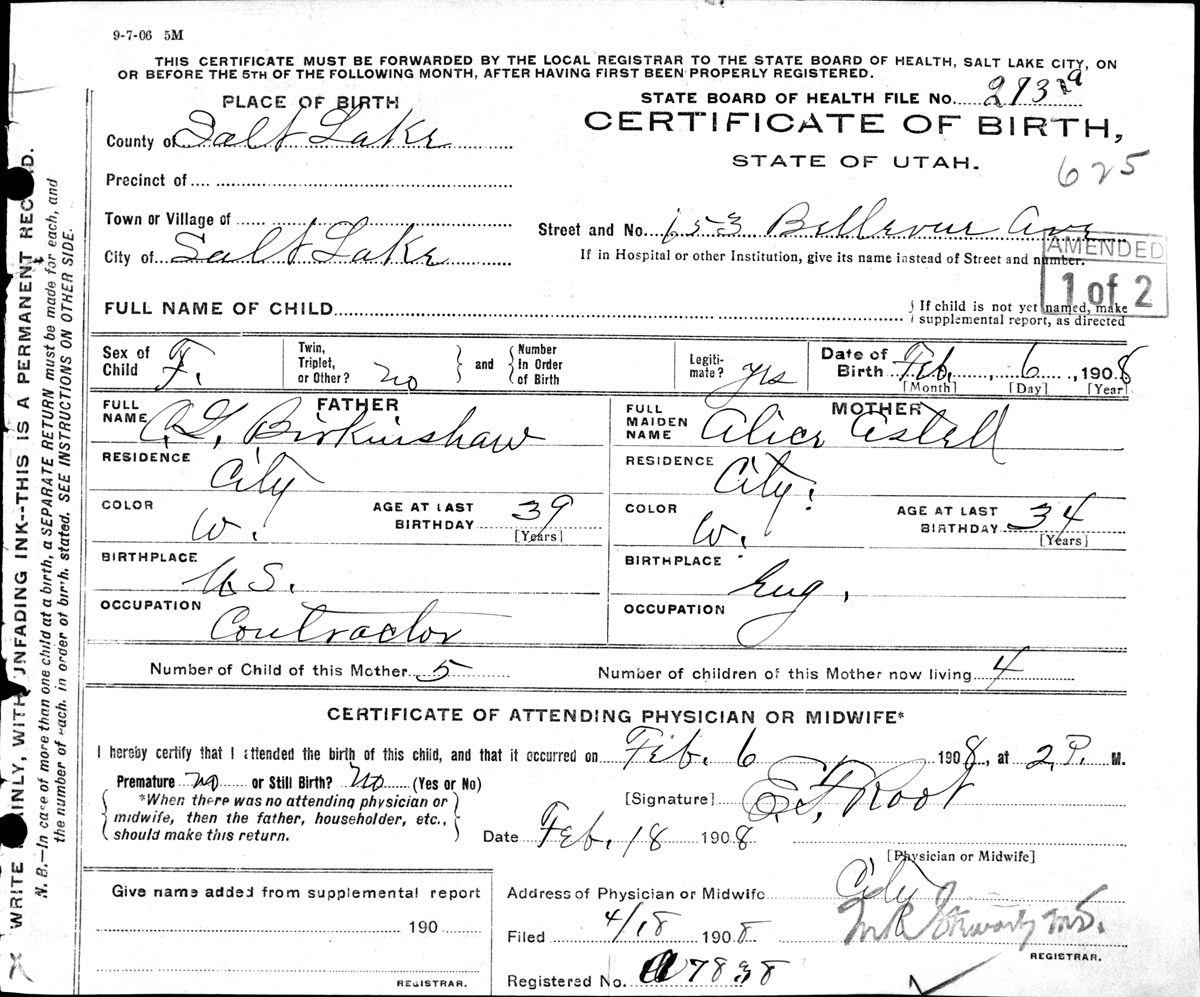 9-7-06 5M
THIS CERTIFICATE MUST BE FORWARDED BY THE LOCAL REGISTRAR TO THE STATE BOARD OF HEALTH, SALT LAKE CITY, ON
OR BEFORE THE 5TH OF THE FOLLOWING MONTH, AFTER HAVING FIRST BEEN PROPERLY REGISTERED.
PLACE OF BIRTH
STATE BOARD OF HEALTH FILE No.
County of Salt Lake
CERTIFICATE OF BIRTH,
STATE OF UTAH.
625
Precinct of
Town or Village of
Street and No. 653 Bellevue Ave
City of Salt Lake
If in Hospital or other Institution, give its name instead of Street and number.
AMENDED
1 of 2
FULL NAME OF CHILD
If child is not yet named, make
supplemental report, as directed
Sex of Child F.
Twin, Triplet, or Other? no
and Number In Order of Birth
Legiti- mate? yes
Date of Birth Feb. 6, 1908
[Month] [Day] [Year]
FATHER
FULL NAME A.G. Birkinshaw
RESIDENCE City
COLOR W.
AGE AT LAST BIRTHDAY 39
[Years]
BIRTHPLACE U.S.
OCCUPATION Contractor
MOTHER
FULL MAIDEN NAME Alice Astell
RESIDENCE City.
COLOR W.
AGE AT LAST BIRTHDAY 34
[Years]
BIRTHPLACE Eng.
OCCUPATION
Number of Child of this Mother 5
Number of children of this Mother now living 4
CERTIFICATE OF ATTENDING PHYSICIAN OR MIDWIFE*
I hereby certify that I attended the birth of this child, and that it occurred on Feb. 6 1908, at 2 P. M.
Premature no or Still Birth? no (Yes or No)
*When there was no attending physician or
midwife, then the father, householder, etc.,
should make this return.
[Signature] E.F. Root
Date Feb. 18 1908
[Physician or Midwife]
Give name added from supplemental report
190
REGISTRAR.
Address of Physician or Midwife City
Filed 4/18 1908
REGISTRAR.
Registered No.
WRITE PLAINLY, WITH UNFADING INK--THIS IS A PERMANENT RECORD.
N. B.—In case of more than one child at a birth, a SEPARATE RETURN must be made for each, and
the number of each, in order of birth, stated. SEE INSTRUCTIONS ON OTHER SIDE.